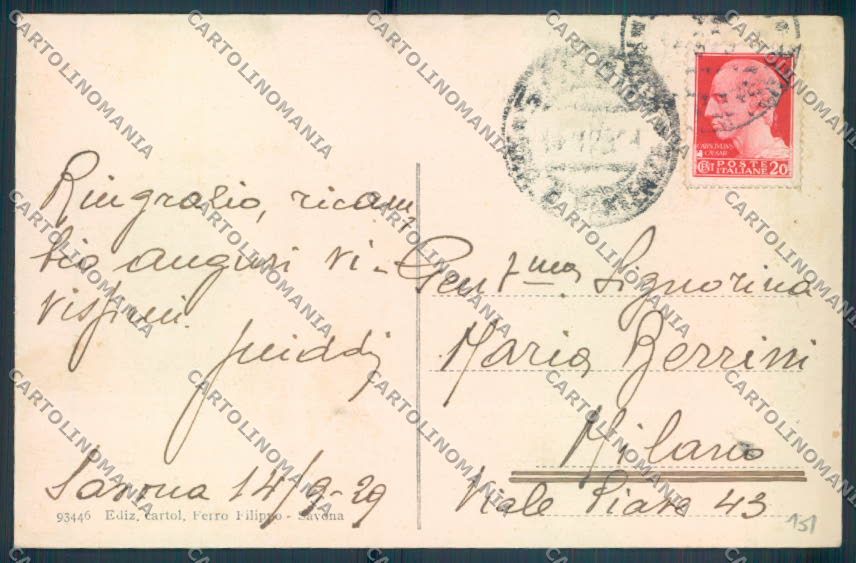 Ringrazio, ricam-
bio auguri vi-
vissimi.
Savona 14/9-29
93446 Ediz. cartol. Ferro Filippo - Savona
CAIVS IVLIVS
CAESAR
POSTE
ITALIANE 20
Gent.ma Signorina
Maria Berrini
Milano
Viale Piave 43
151
CARTOLINOMANIA